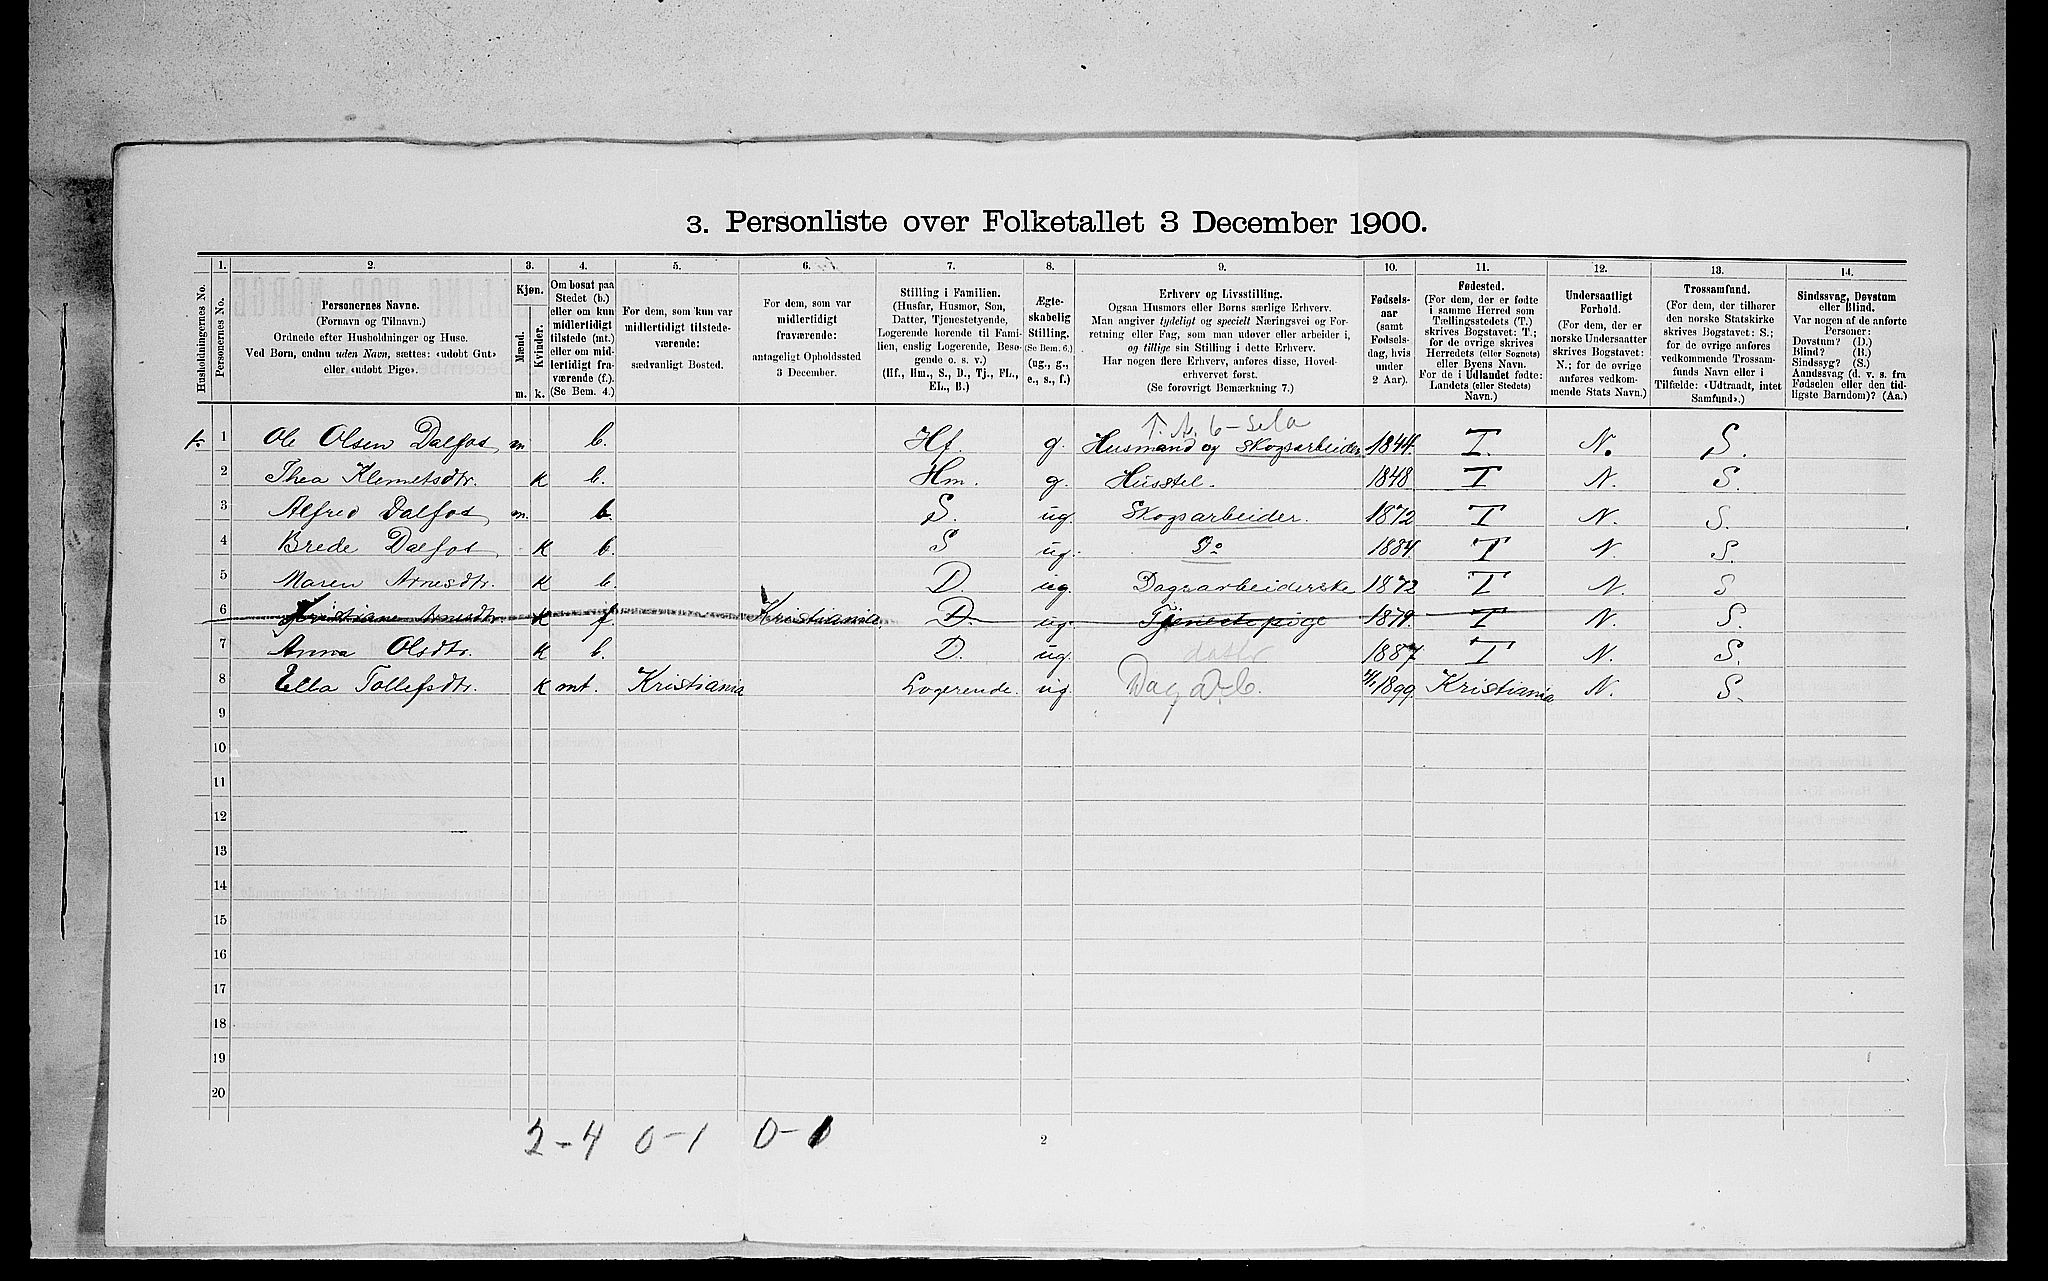 3. Personliste over Folketallet 3 December 1900.
1. 2. 3. 4. 5. 6. 7. 8. 9. 10. 11. 12. 13. 14.
Husholdningernes No.
Personernes No.
Personernes Navne.
(Fornavn og Tilnavn.)
Ordnede efter Husholdninger og Huse.
Ved Børn, endnu uden Navn, sættes: «udøbt Gut»
eller «udøbt Pige».
Kjøn.
Mænd.
Kvinder.
m. k.
Om bosat paa
Stedet (b.)
eller om kun
midlertidigt
tilstede (mt.)
eller om mid-
lertidigt fra-
værende (f.).
(Se Bem. 4.)
For dem, som kun var
midlertidigt tilstede-
værende:
sædvanligt Bosted.
For dem, som var
midlertidigt
fraværende:
antageligt Opholdssted
3 December.
Stilling i Familien.
(Husfar, Husmor, Søn,
Datter, Tjenestetyende,
Logerende hørende til Fami-
lien, enslig Logerende, Besø-
gende o. s. v.)
(Hf., Hm., S., D., Tj., FL.,
EL., B.)
Ægte-
skabelig
Stilling.
(Se Bem. 6.)
(ug., g.,
e., s., f.)
Erhverv og Livsstilling.
Ogsaa Husmors eller Børns særlige Erhverv.
Man angiver tydeligt og specielt Næringsvei og For-
retning eller Fag, som man udøver eller arbeider i,
og tillige sin Stilling i dette Erhverv.
Har nogen flere Erhverv, anføres disse, Hoved-
erhvervet først.
(Se forøvrigt Bemærkning 7.)
Fødsels-
aar
(samt
Fødsels-
dag, hvis
under
2 Aar).
Fødested.
(For dem, der er fødte
i samme Herred som
Tællingsstedets (T.)
skrives Bogstavet: T;
for de øvrige skrives
Herredets (eller Sognets)
eller Byens Navn.
For de i Udlandet fødte:
Landets (eller Stedets)
Navn.)
Undersaatligt
Forhold.
(For dem, der er
norske Undersaatter
skrives Bogstavet:
N.; for de øvrige
anføres vedkom-
mende Stats Navn.)
Trossamfund.
(For dem, der tilhører
den norske Statskirke
skrives Bogstavet: S.;
for de øvrige anføres
vedkommende Trossam-
funds Navn eller i
Tilfælde: «Udtraadt, intet
Samfund».)
Sindssvag, Døvstum
eller Blind.
Var nogen af de anførte
Personer:
Døvstum? (D.)
Blind? (B.)
Sindssyg? (S.)
Aandssvag (d. v. s. fra
Fødselen eller den tid-
ligste Barndom)? (Aa.)
1 Ole Olsen Dalfos m b. Hf. g. Husmand og Skogsarbeider 1844. T. N. S.
2 Thea Klemetsdtr. k b. Hm. g. Husstel. 1848 T N. S.
3 Alfred Dalfos m. b. S. ug. Skogsarbeider. 1872 T N. S.
4 Brede Dalfos k b. S ug. Do 1884. T N. S.
5 Maren Arnesdtr. k b. D. ug. Dagsarbeiderske 1872 T N. S
6 Kristiane Arnesdtr. k f Kristiania. D. ug. Tjenestepige 1879. T N. S.
7 Anna Olsdtr. k b. D. ug. datter 1887 T N. S.
8 Ella Tollefsdtr. k mt. Kristiania Logerende. ug. 1899. Kristiania N. S.
9
10
11
12
13
14
15
16
17
18
19
20
2-4 0-1 0-1
2